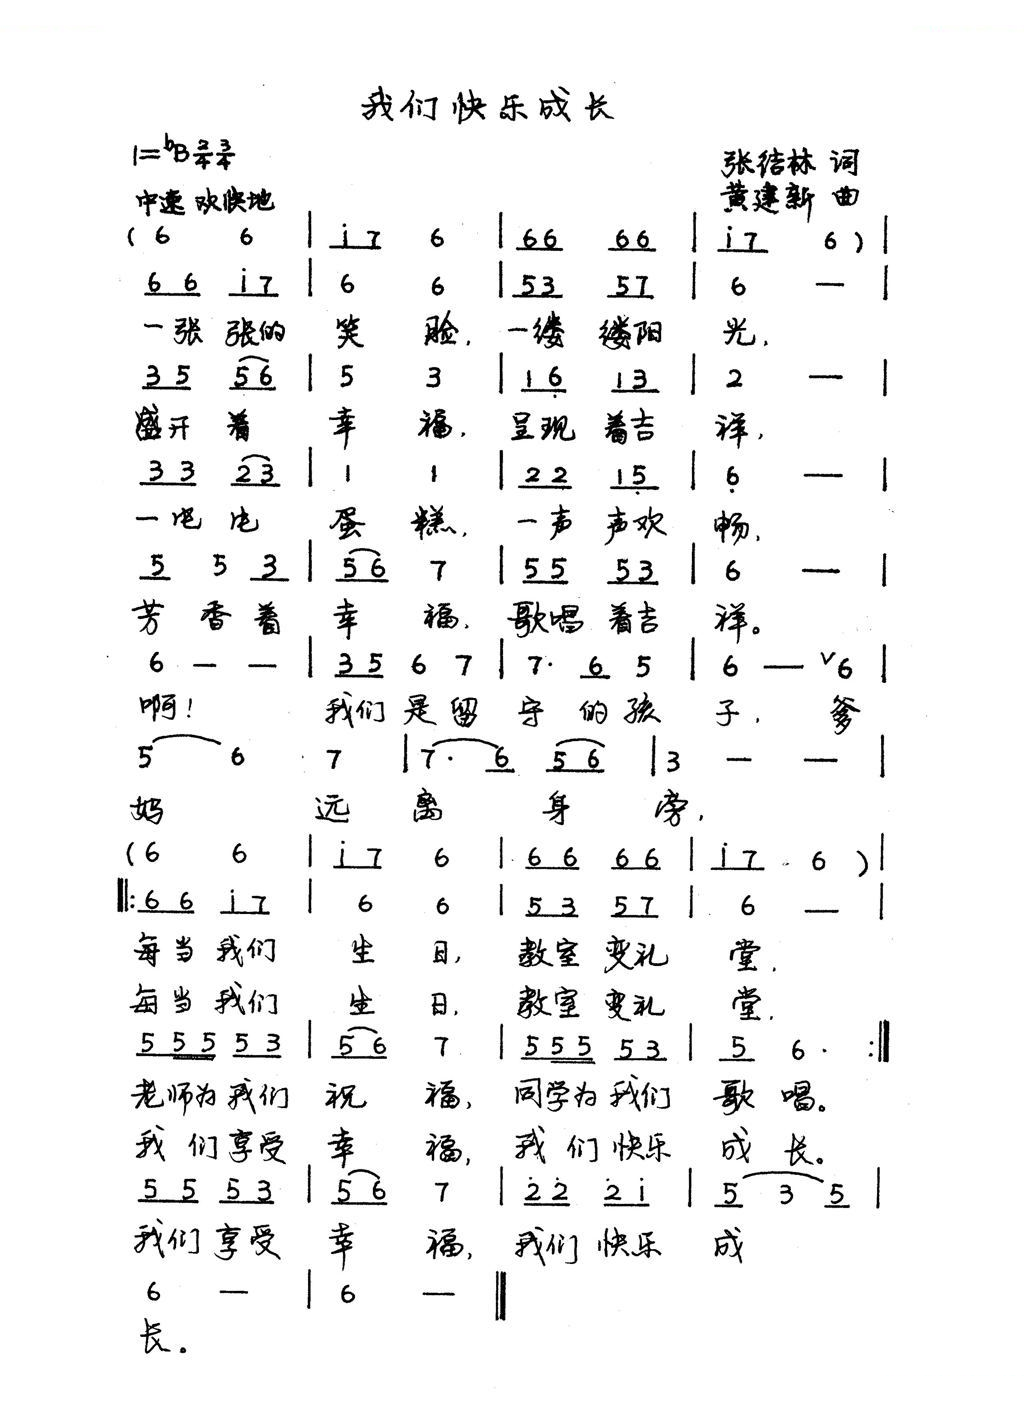 我们快乐成长
1=♭B 2/4 3/4
张结林 词
中速 欢快地
黄建新 曲
(6 6 | i7 6 | 66 66 | i7 6) |
66 i7 | 6 6 | 53 57 | 6 — |
一张张的笑脸,一缕缕阳光,
35 56 | 5 3 | 16 13 | 2 — |
盛开着幸福,呈现着吉祥,
33 23 | 1 1 | 22 15 | 6 — |
一屯屯蛋糕,一声声欢畅,
5 5 3 | 56 7 | 55 53 | 6 — |
芳香着幸福,歌唱着吉祥。
6 — — | 35 6 7 | 7· 6 5 | 6 — ∨6 |
啊! 我们是留守的孩子,爹
5 6 7 | 7· 6 56 | 3 — — |
妈远离身旁,
(6 6 | i7 6 | 66 66 | i7 6) |
‖:66 i7 | 6 6 | 53 57 | 6 — |
每当我们生日,教室变礼堂,
每当我们生日,教室变礼堂,
555 53 | 56 7 | 555 53 | 5 6· :‖
老师为我们祝福,同学为我们歌唱。
我们享受幸福,我们快乐成长。
55 53 | 56 7 | 22 2i | 5 3 5 |
我们享受幸福,我们快乐成
6 — | 6 — ‖
长。